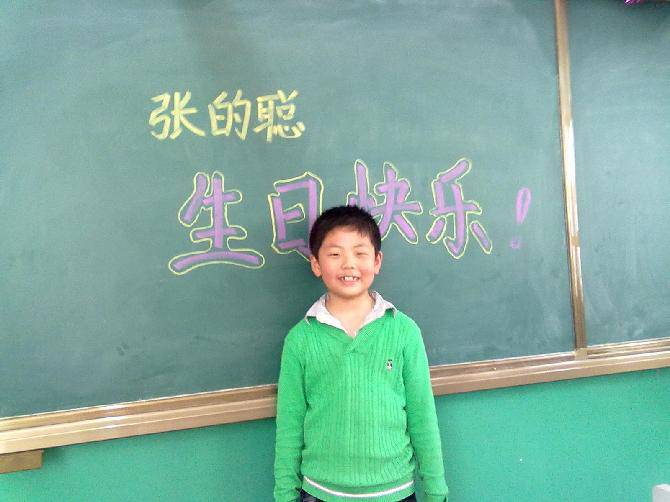 张的聪
生日快乐!